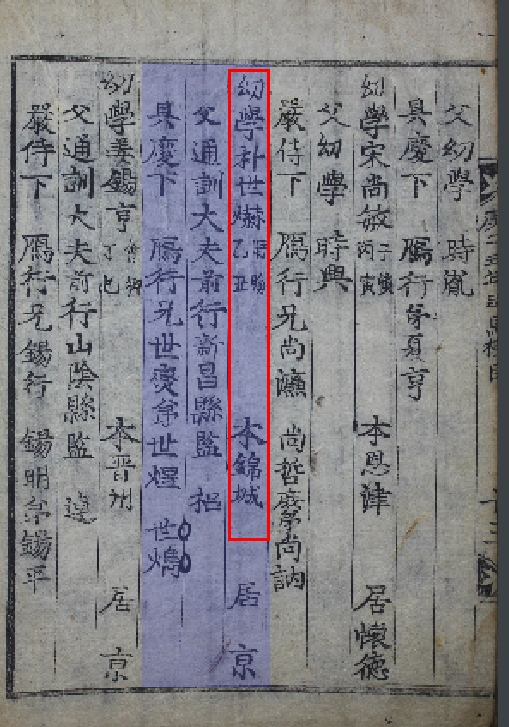 父幼學 時胤
具慶下 鴈行弟夏亨
幼學宋尚敏 丙寅 本恩津 居懷德
父幼學 時興
嚴侍下 鴈行兄尚濂 尚哲庶弟尚訥
幼學朴世 乙丑 本錦城 居京
父通訓大夫前行新昌縣監
具慶下 鴈行兄世 弟世煌 世
幼學姜錫亨 本晋州 居京
父通訓大夫前行山陰縣監
嚴侍下 鴈行兄錫行 錫明弟錫平